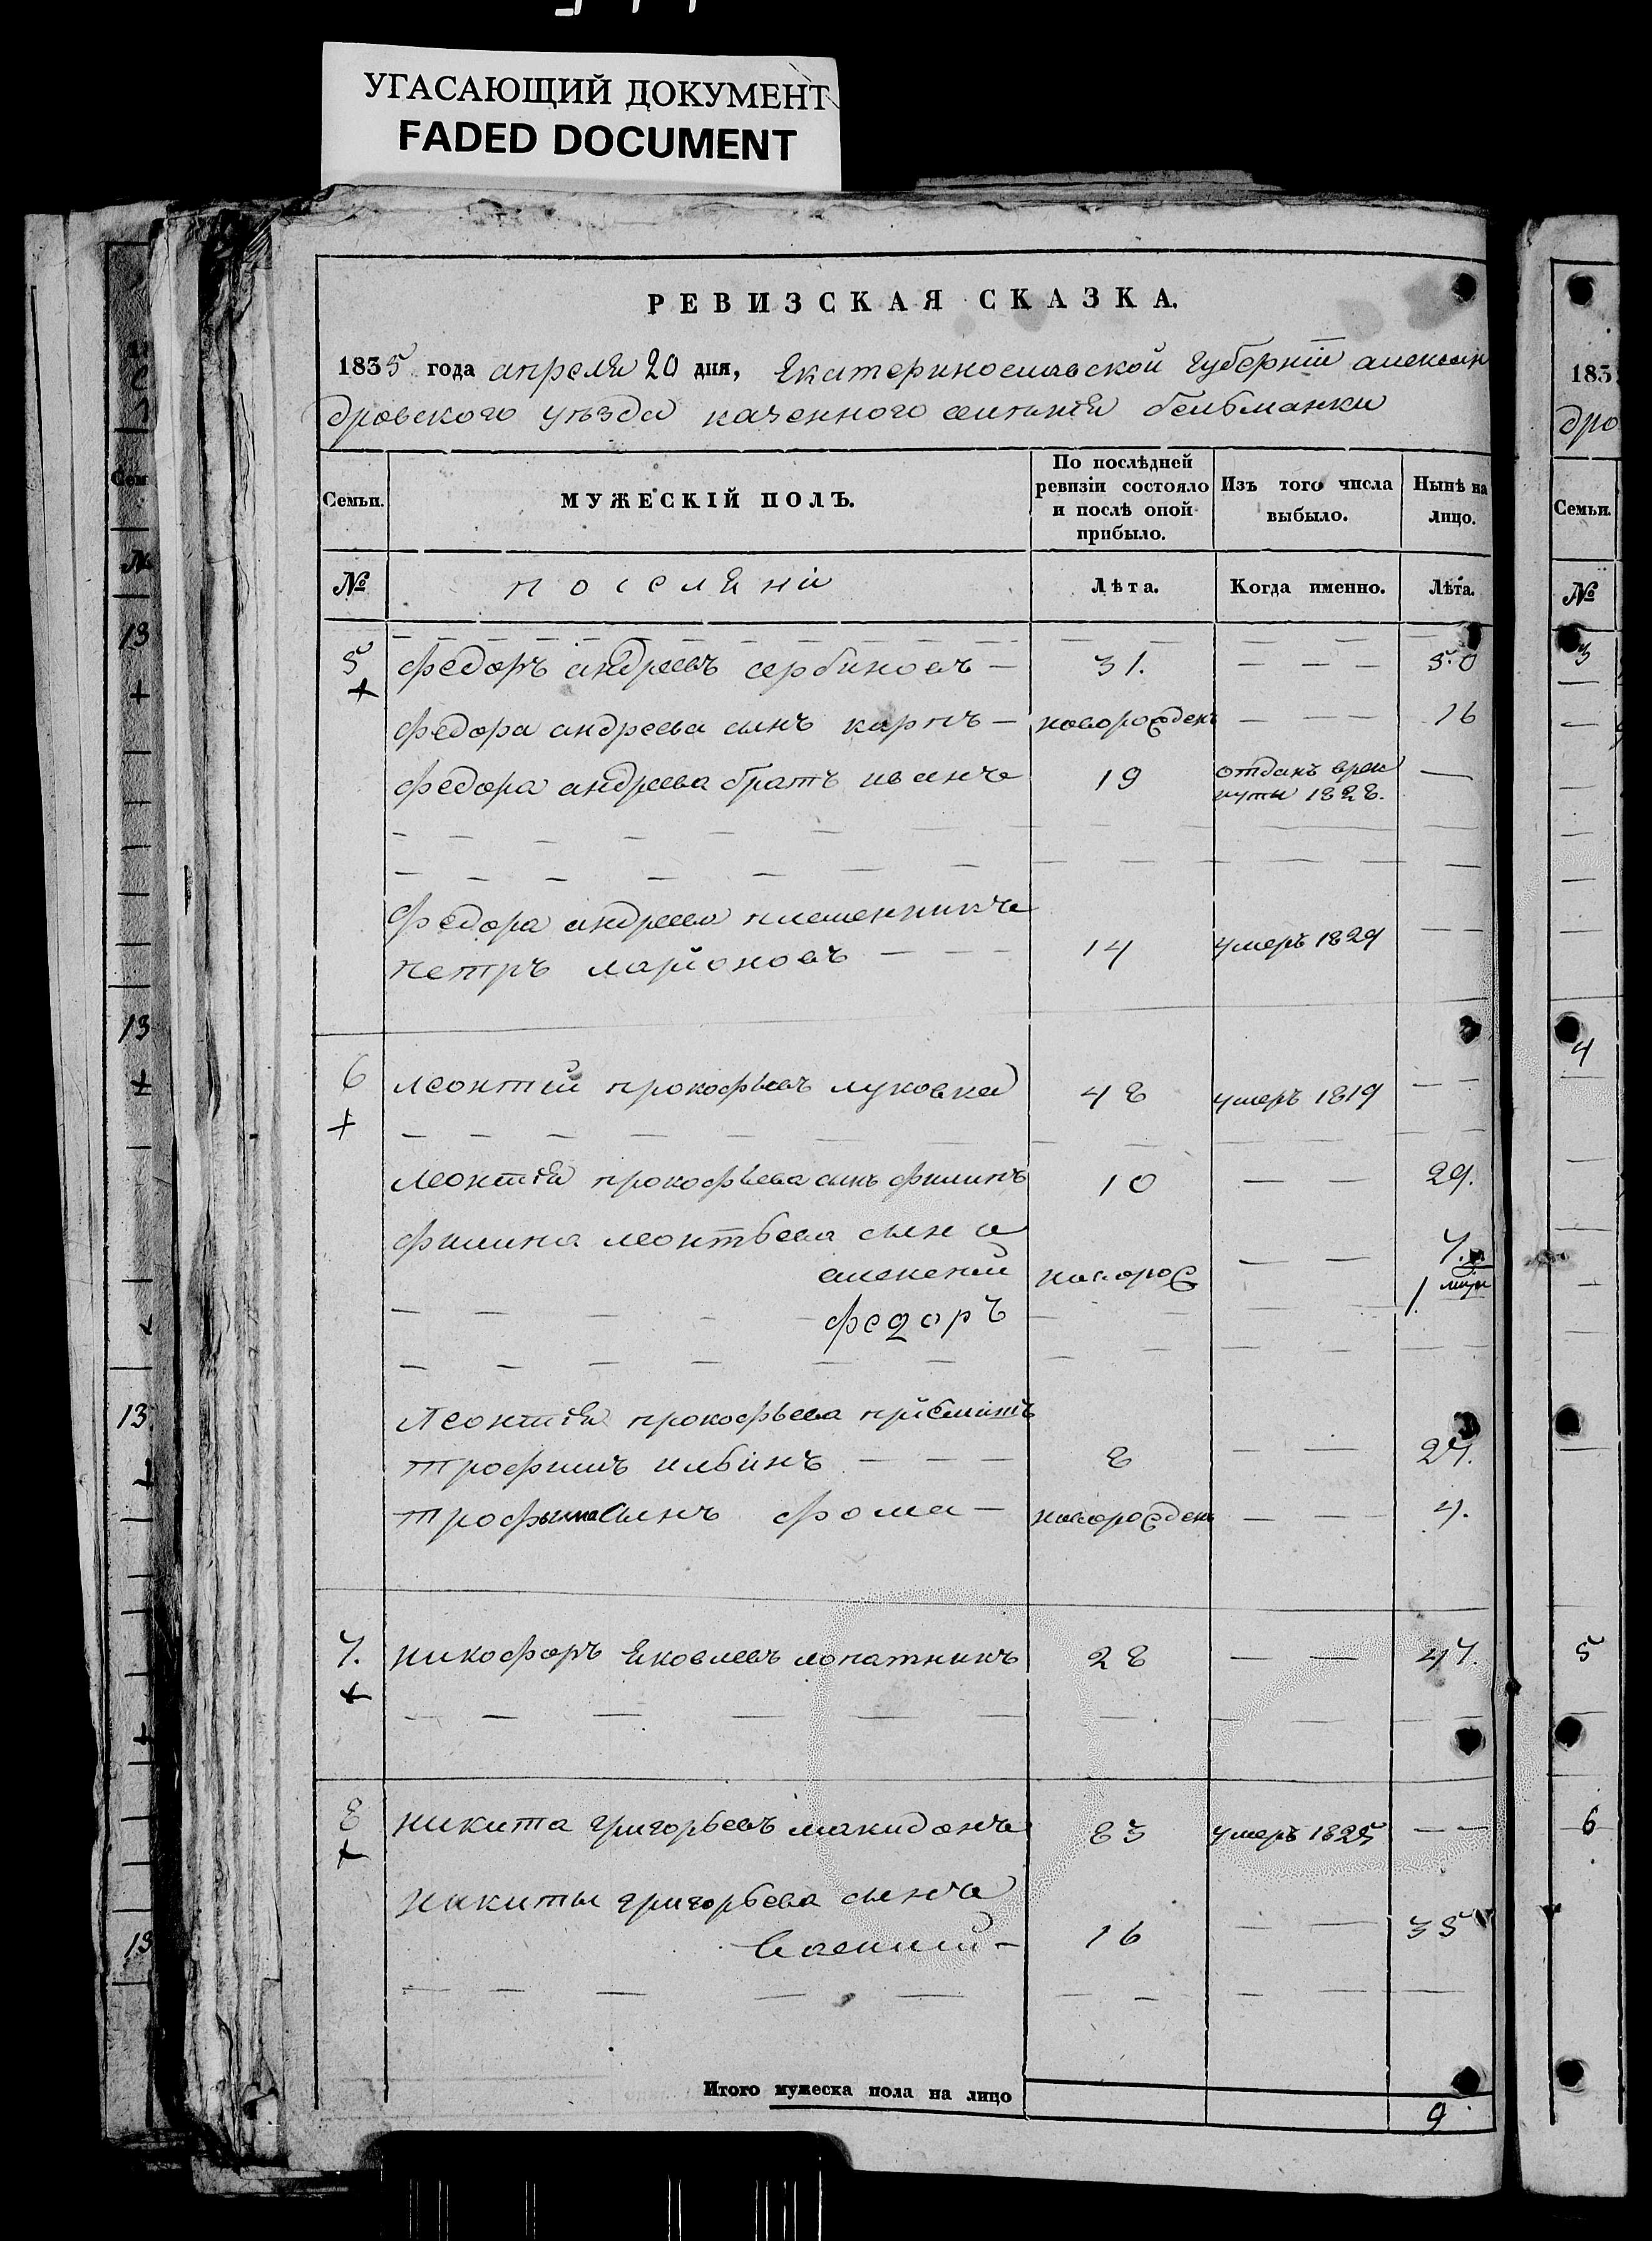 УГАСАЮЩИЙ ДОКУМЕНТ
FADED DOCUMENT
РЕВИЗСКАЯ СКАЗКА.
1835 года апреля 20 дня, Екатеринославской губерніи александ
дровского уезда казенного селенія белманки
Семьи.
МУЖЕСКІЙ ПОЛЪ.
По послѣдней ревизіи состояло и послѣ оной прибыло.
Изъ того числа выбыло.
Нынѣ на лицо.
№
поселяни
Лѣта.
Когда именно.
Лѣта.
5 федоръ андреевъ сербиновъ — 31. — — — 50
федора андреева сынъ карпъ — новорожденъ — — — 16
федора андреева братъ иванъ 19 отданъ врек
руты 1828. —
федора андреева племенникъ
петръ ларионовъ — — — 14 умеръ 1829 — —
6 леонтій прокофьевъ луковка 48 умеръ 1819 — —
леонтія прокофьева сынъ филипъ 10 — — 29.
филипа леонтьева сын
алексей новорож — — 7.
федоръ 1.
Леонтія прокофьева приемышъ
трофимъ ильинъ — — — 8 — — 27.
трофима сынъ фома — новорожденъ — — — 4.
7. никофоръ яковлевъ лопатникъ 28 — — 47.
8 никита григорьевъ макидонъ 83 умеръ 1825 — —
никиты григорьева сынъ
Василий — 16 — — 35
Итого мужеска пола на лицо 9
183
дро
Семьи.
№
3
4
5
6
13
13
13
13